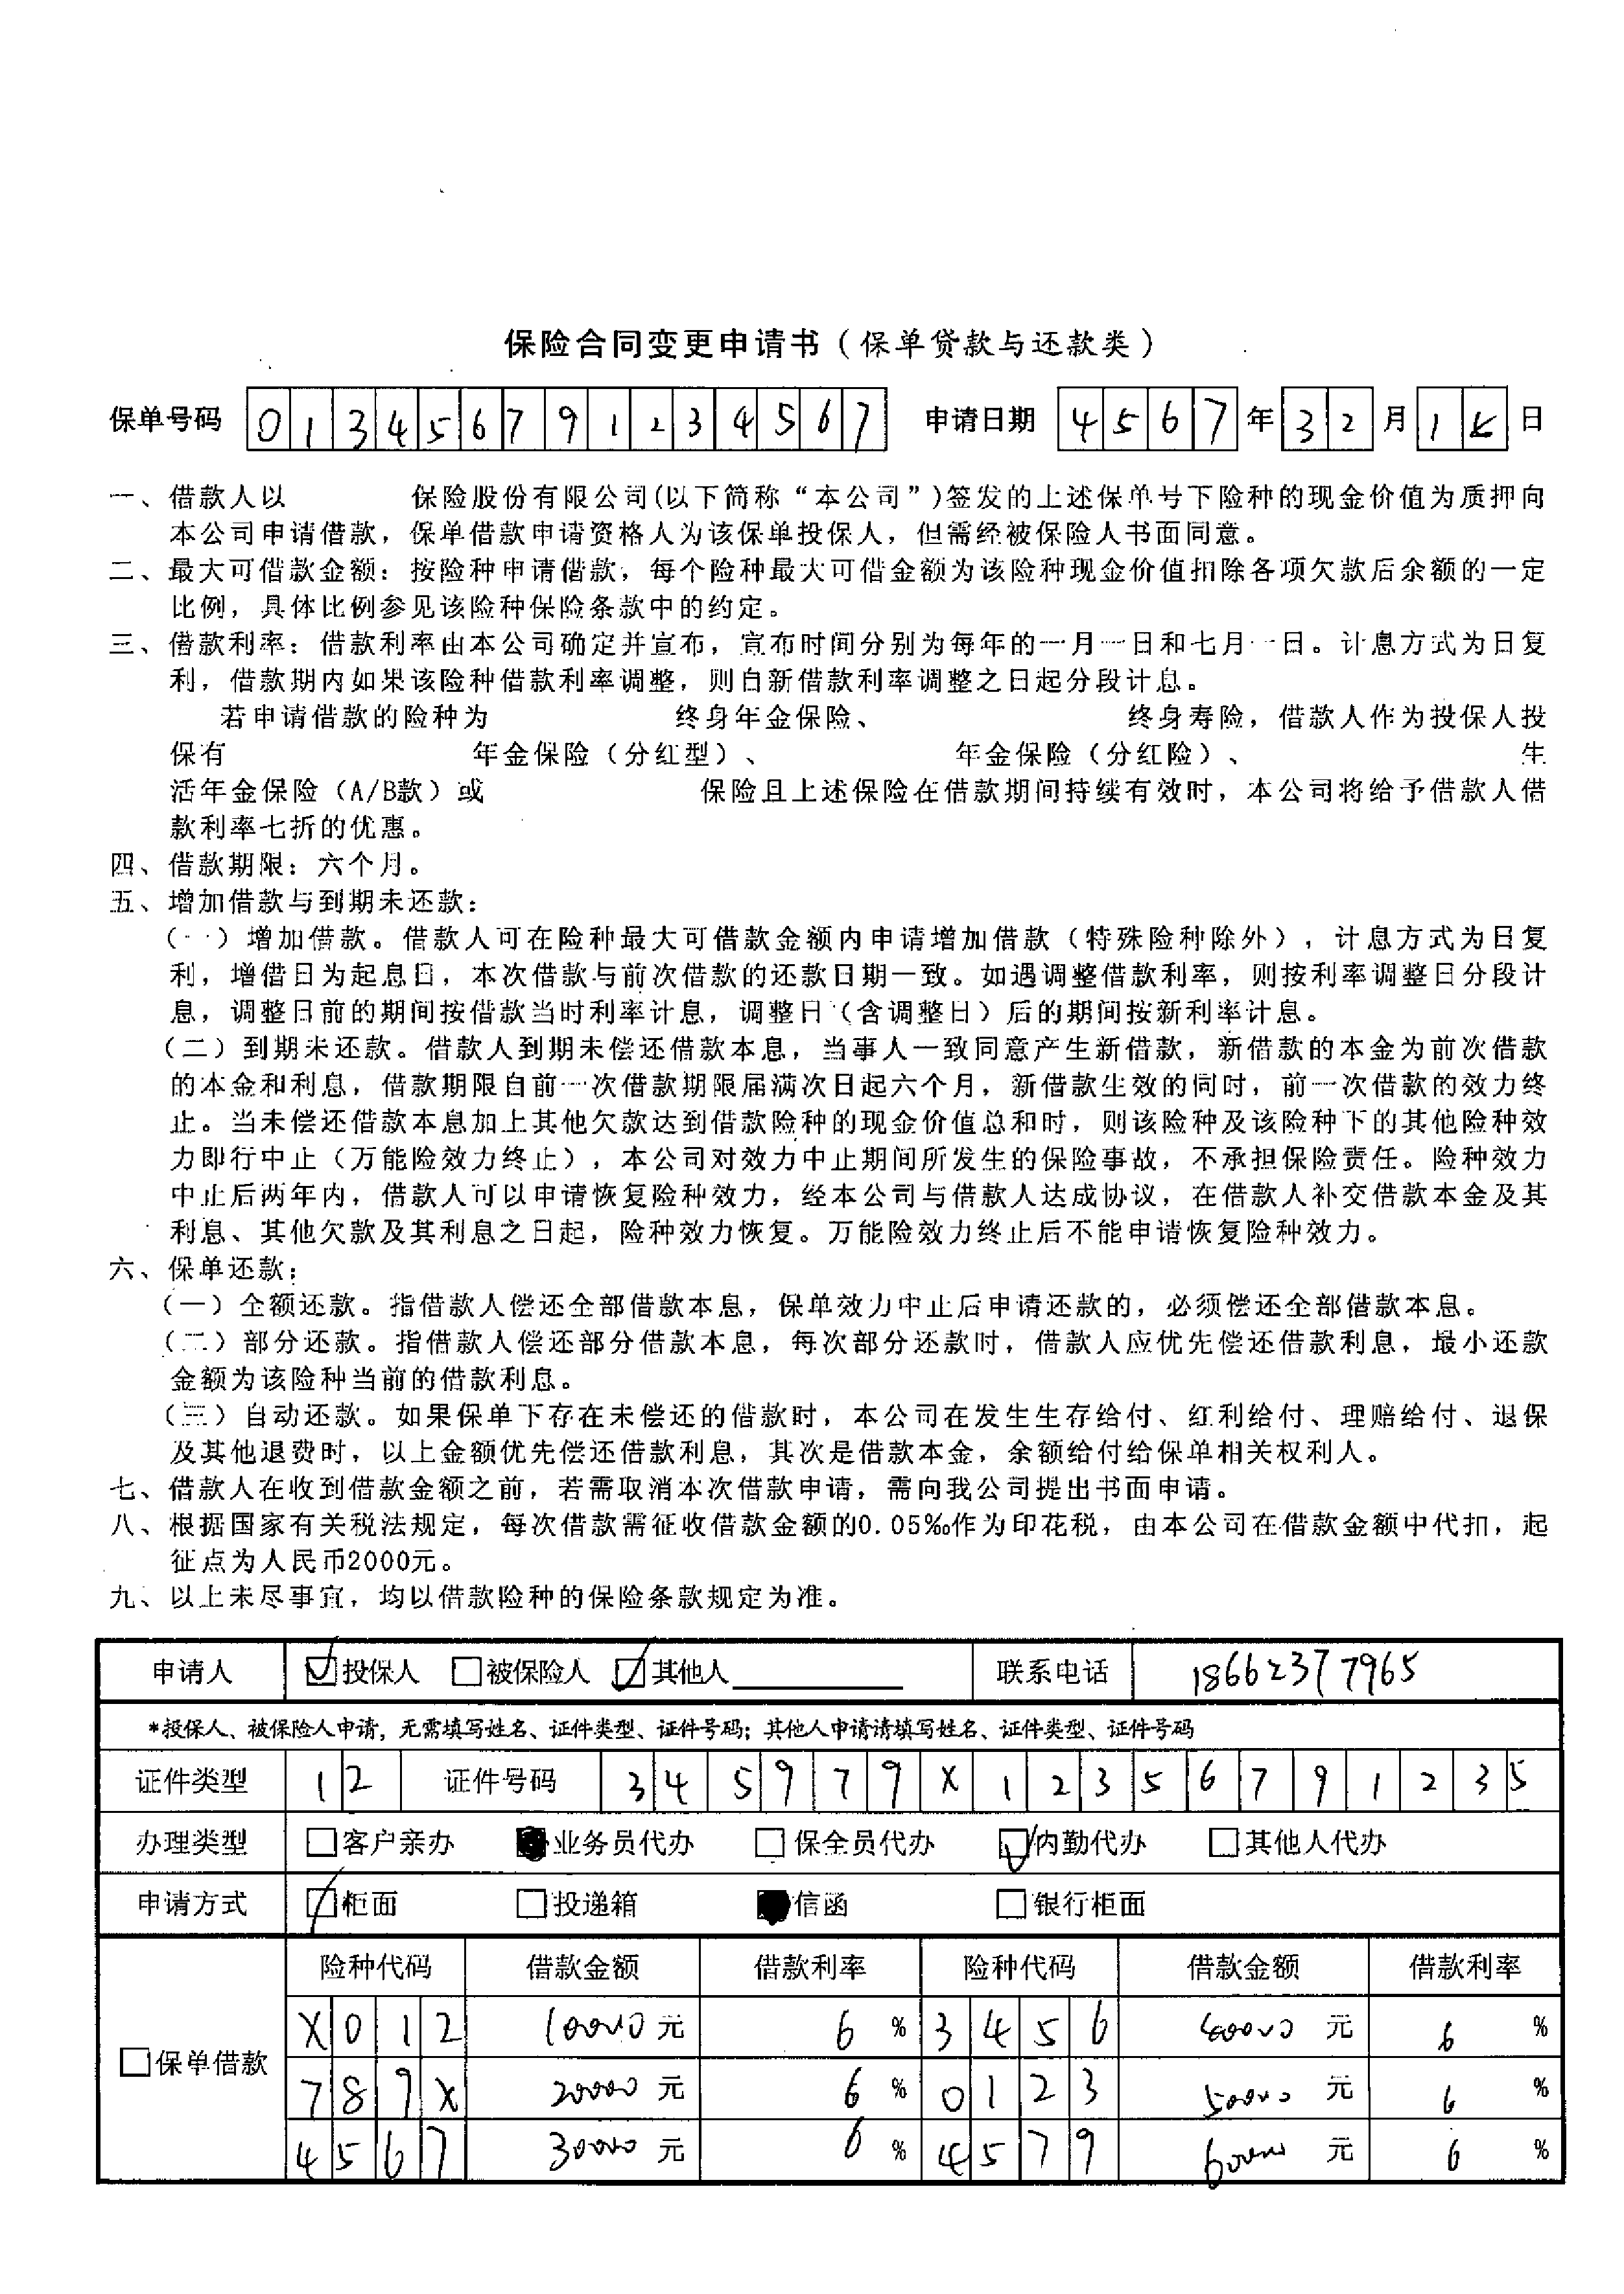 保险合同变更申请书（保单贷款与还款类）
保单号码 013456791234567 申请日期 4567年32月15日
一、借款人以 保险股份有限公司(以下简称“本公司”)签发的上述保单号下险种的现金价值为质押向
本公司申请借款，保单借款申请资格人为该保单投保人，但需经被保险人书面同意。
二、最大可借款金额：按险种申请借款，每个险种最大可借金额为该险种现金价值扣除各项欠款后余额的一定
比例，具体比例参见该险种保险条款中的约定。
三、借款利率：借款利率由本公司确定并宣布，宣布时间分别为每年的一月一日和七月一日。计息方式为日复
利，借款期内如果该险种借款利率调整，则自新借款利率调整之日起分段计息。
若申请借款的险种为 终身年金保险、 终身寿险，借款人作为投保人投
保有 年金保险（分红型）、 年金保险（分红险）、 生
活年金保险（A/B款）或 保险且上述保险在借款期间持续有效时，本公司将给予借款人借
款利率七折的优惠。
四、借款期限：六个月。
五、增加借款与到期未还款：
（一）增加借款。借款人可在险种最大可借款金额内申请增加借款（特殊险种除外），计息方式为日复
利，增借日为起息日，本次借款与前次借款的还款日期一致。如遇调整借款利率，则按利率调整日分段计
息，调整日前的期间按借款当时利率计息，调整日（含调整日）后的期间按新利率计息。
（二）到期未还款。借款人到期未偿还借款本息，当事人一致同意产生新借款，新借款的本金为前次借款
的本金和利息，借款期限自前一次借款期限届满次日起六个月，新借款生效的同时，前一次借款的效力终
止。当未偿还借款本息加上其他欠款达到借款险种的现金价值总和时，则该险种及该险种下的其他险种效
力即行中止（万能险效力终止），本公司对效力中止期间所发生的保险事故，不承担保险责任。险种效力
中止后两年内，借款人可以申请恢复险种效力，经本公司与借款人达成协议，在借款人补交借款本金及其
利息、其他欠款及其利息之日起，险种效力恢复。万能险效力终止后不能申请恢复险种效力。
六、保单还款：
（一）全额还款。指借款人偿还全部借款本息，保单效力中止后申请还款的，必须偿还全部借款本息。
（二）部分还款。指借款人偿还部分借款本息，每次部分还款时，借款人应优先偿还借款利息，最小还款
金额为该险种当前的借款利息。
（三）自动还款。如果保单下存在未偿还的借款时，本公司在发生生存给付、红利给付、理赔给付、退保
及其他退费时，以上金额优先偿还借款利息，其次是借款本金，余额给付给保单相关权利人。
七、借款人在收到借款金额之前，若需取消本次借款申请，需向我公司提出书面申请。
八、根据国家有关税法规定，每次借款需征收借款金额的0.05‰作为印花税，由本公司在借款金额中代扣，起
征点为人民币2000元。
九、以上未尽事宜，均以借款险种的保险条款规定为准。
申请人 投保人 被保险人 其他人 联系电话 18662377965
*投保人、被保险人申请，无需填写姓名、证件类型、证件号码；其他人申请请填写姓名、证件类型、证件号码
证件类型 12 证件号码 345979X12356791235
办理类型 客户亲办 业务员代办 保全员代办 内勤代办 其他人代办
申请方式 柜面 投递箱 信函 银行柜面
险种代码 借款金额 借款利率 险种代码 借款金额 借款利率
X012 10000元 6 % 3456 40000 元 6 %
保单借款
789X 20000元 6 % 0123 50000 元 6 %
4567 30000元 6 % 4579 60000 元 6 %